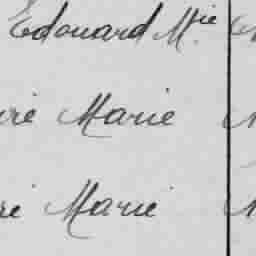 Edouard Mie
Marie
Marie